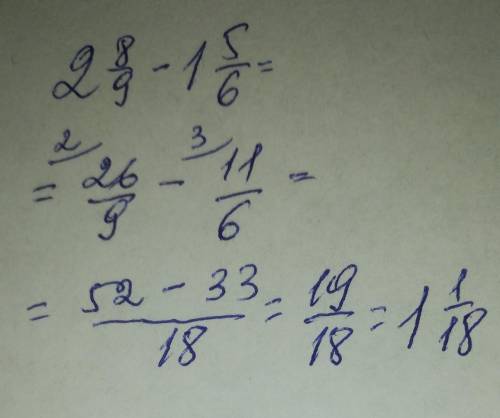 2 8/9 - 1 5/6 =
= 2/ 26/9 - 3/ 11/6 =
= (52 - 33)/18 = 19/18 = 1 1/18